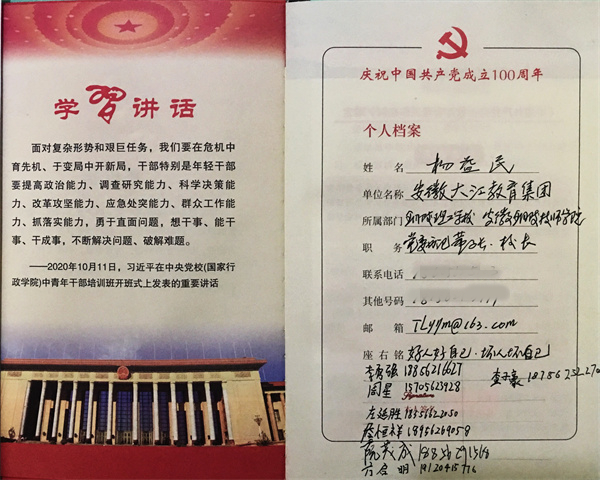 学習讲话
面对复杂形势和艰巨任务，我们要在危机中
育先机、于变局中开新局，干部特别是年轻干部
要提高政治能力、调查研究能力、科学决策能
力、改革攻坚能力、应急处突能力、群众工作能
力、抓落实能力，勇于直面问题，想干事、能干
事、干成事，不断解决问题、破解难题。
——2020年10月11日，习近平在中央党校(国家行
政学院)中青年干部培训班开班式上发表的重要讲话
庆祝中国共产党成立100周年
个人档案
姓 名 杨益民
单位名称 安徽大江教育集团
所属部门 铜陵理工学校 安徽铜陵技师学院
职 务 党委书记 董事长、校长
联系电话
其他号码
邮 箱 TLyym@163.com
座右铭 好人好自己·坏人坏自己
18856216627
周星 15705623928
左延胜
18956269058